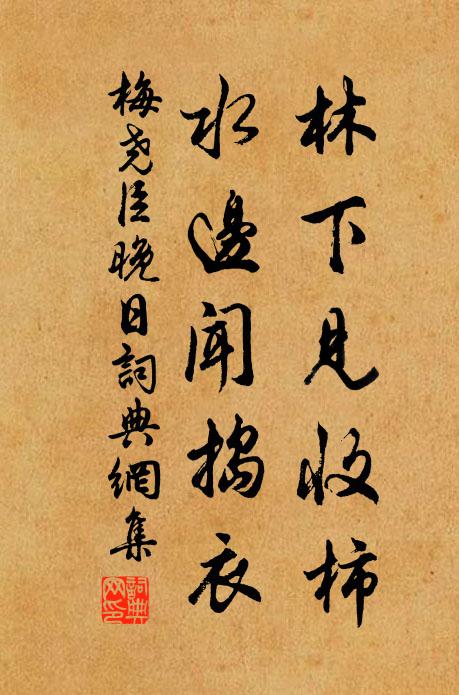 林下見收柿
水邊聞搗衣
梅堯臣晚日詞典網集
詞典網印